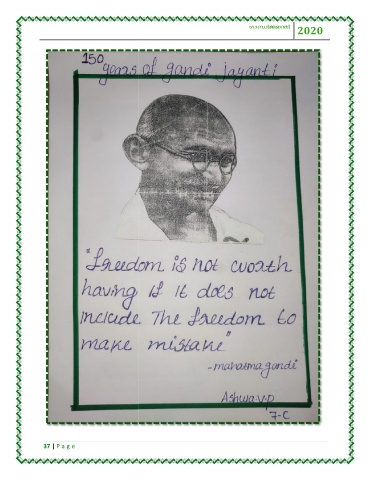 2020
150 years of gandi jayanti
"freedom is not worth
having if it does not
include The freedom to
make mistake"
-mahatma gandi
Ashwa v.p
7-C
37 | Page